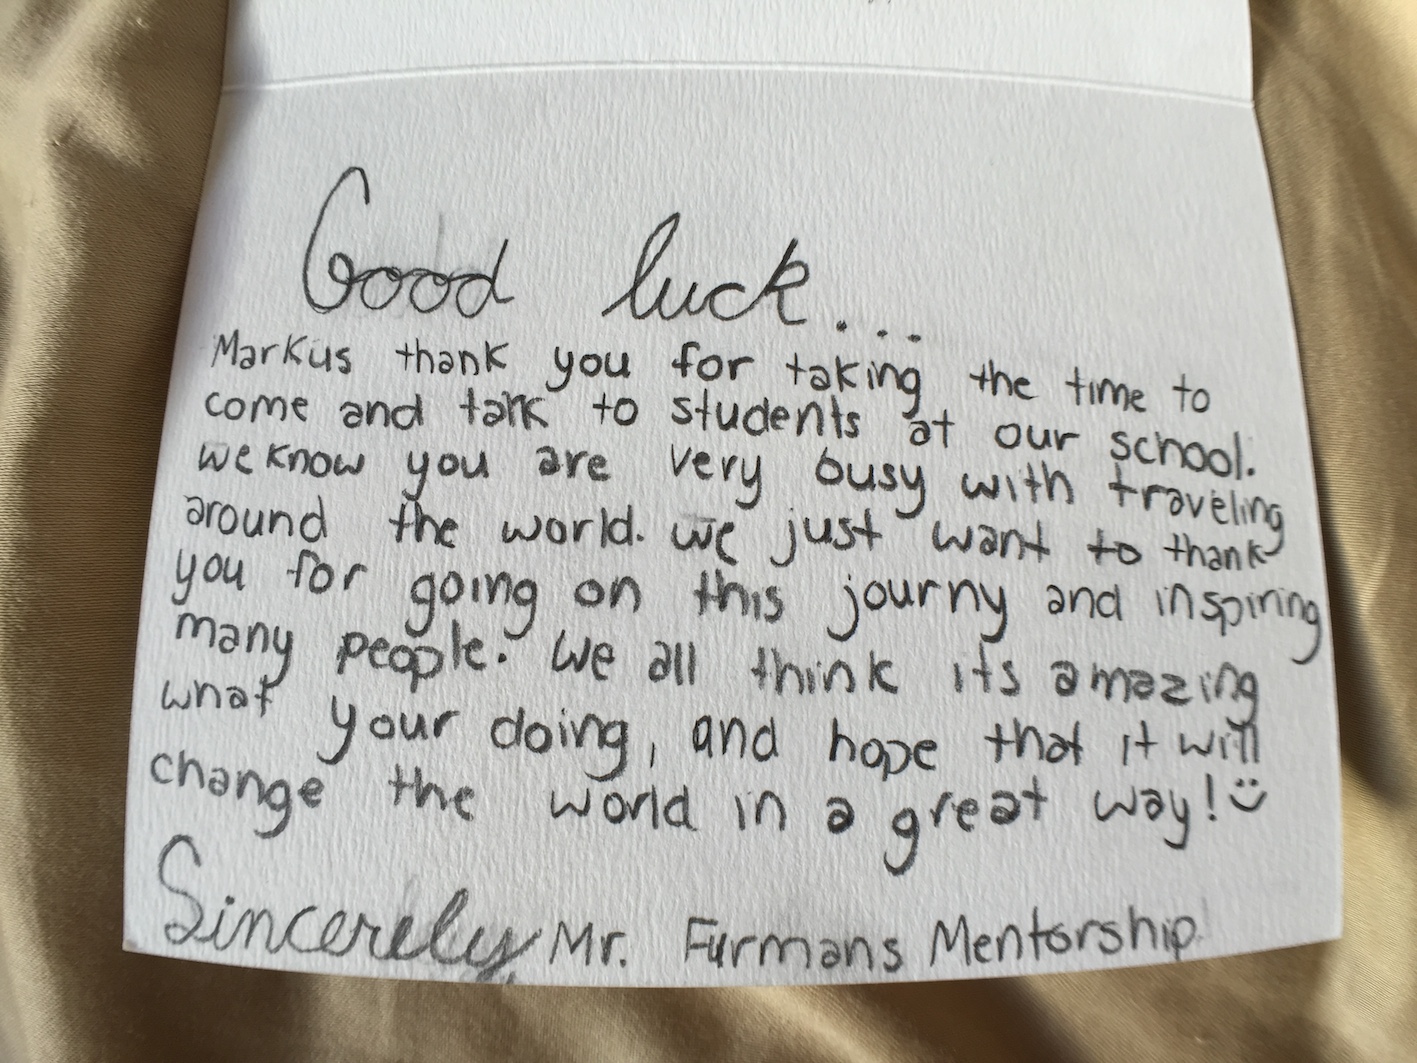 Good luck...
Markus thank you for taking the time to
come and talk to students at our school.
we know you are very busy with traveling
around the world. we just want to thank
you for going on this journy and inspiring
many people. We all think its amazing
what your doing, and hope that it will
change the world in a great way! :)
Sincerely Mr. Furmans Mentorship